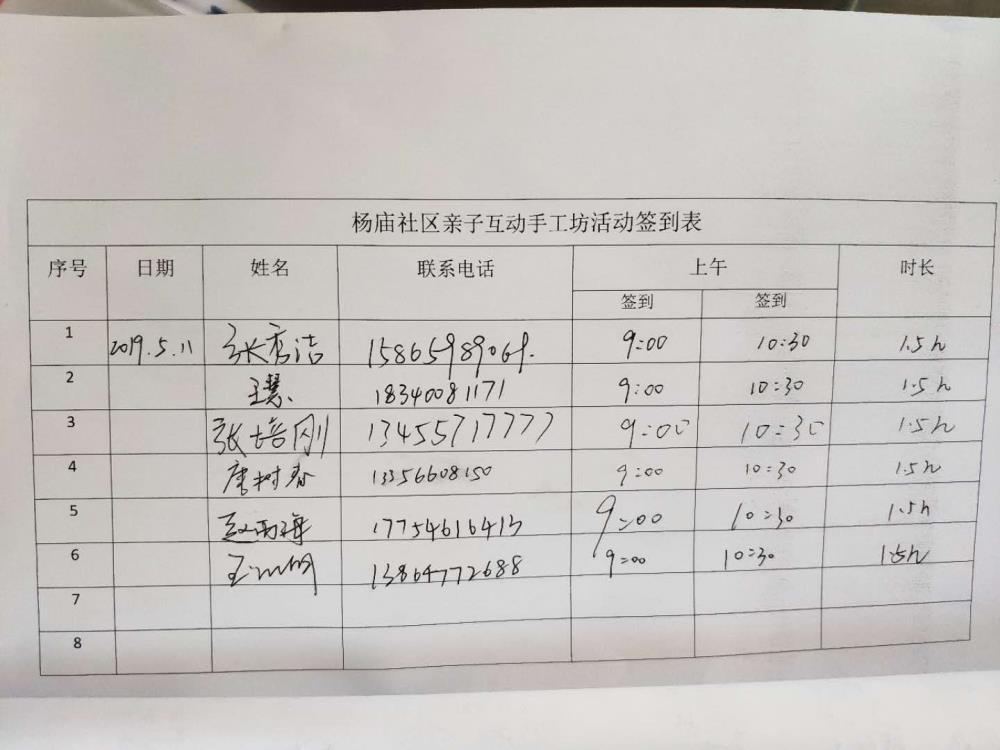 杨庙社区亲子互动手工坊活动签到表
序号 日期 姓名 联系电话 上午 时长
签到 签到
1 2019.5.11 张秀洁 15865989069. 9:00 10:30 1.5h
2 王慧 18340081171 9:00 10:30 1.5h
3 张培刚 13455717777 9:00 10:30 1.5h
4 唐树春 13356608150 9:00 10:30 1.5h
5 17754616413 9:00 10:30 1.5h
6 13864772688 9:00 10:30 1.5h
7
8